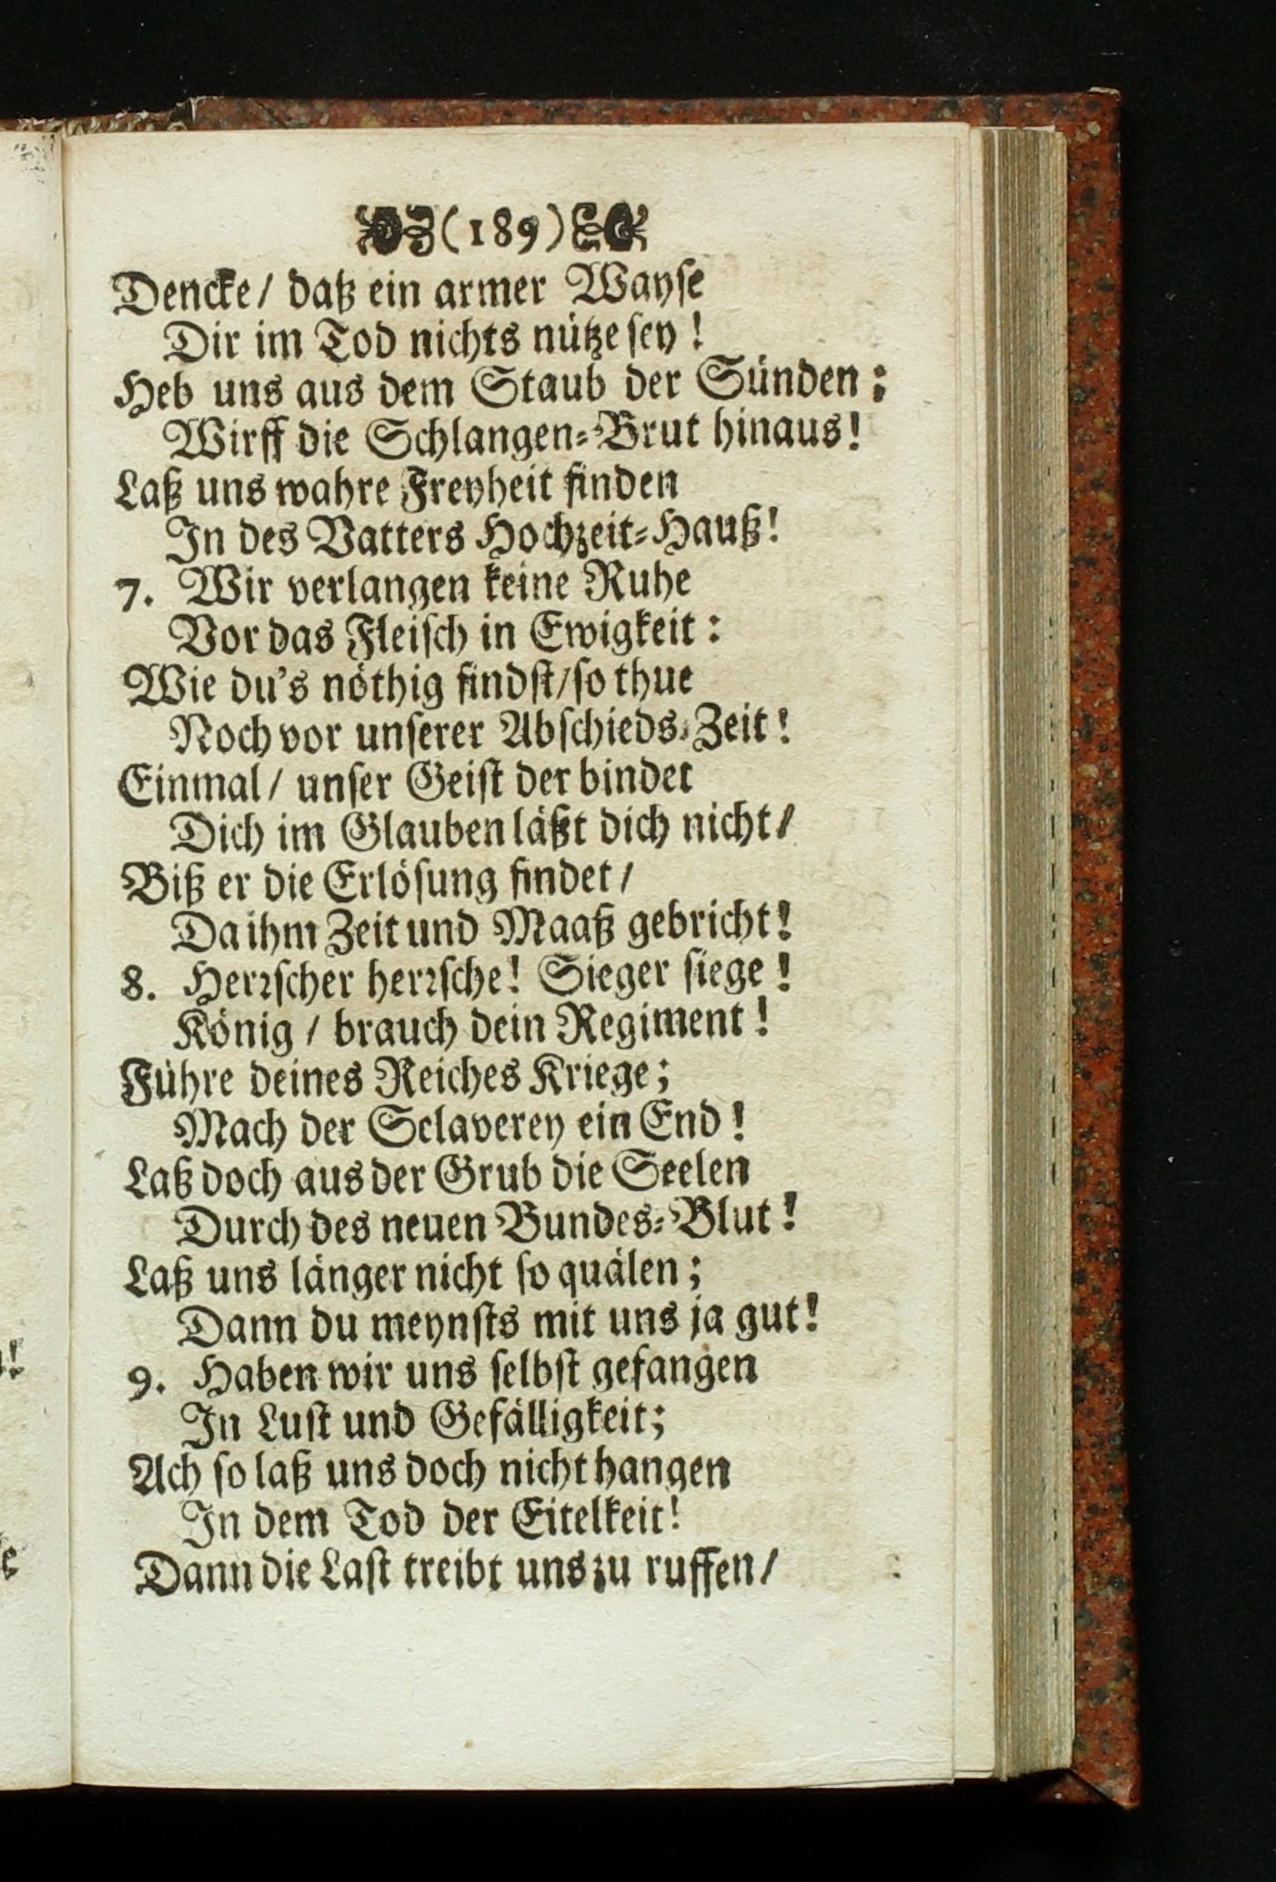 (189)
Dencke/ daß ein armer Wayse
Dir im Tod nichts nütze sey!
Heb uns aus dem Staub der Sünden;
Wirff die Schlangen-Brut hinaus!
Laß uns wahre Freyheit finden
In des Vatters Hochzeit-Hauß!
7. Wir verlangen keine Ruhe
Vor das Fleisch in Ewigkeit:
Wie du's nöthig findst/ so thue
Noch vor unserer Abschieds-Zeit!
Einmal/ unser Geist der bindet
Dich im Glauben läßt dich nicht/
Biß er die Erlösung findet/
Da ihm Zeit und Maaß gebricht!
8. Herrscher herrsche! Sieger siege!
König/ brauch dein Regiment!
Führe deines Reiches Kriege;
Mach der Sclaverey ein End!
Laß doch aus der Grub die Seelen
Durch des neuen Bundes-Blut!
Laß uns länger nicht so quälen;
Dann du meynsts mit uns ja gut!
9. Haben wir uns selbst gefangen
In Lust und Gefälligkeit;
Ach so laß uns doch nicht hangen
In dem Tod der Eitelkeit!
Dann die Last treibt uns zu ruffen/